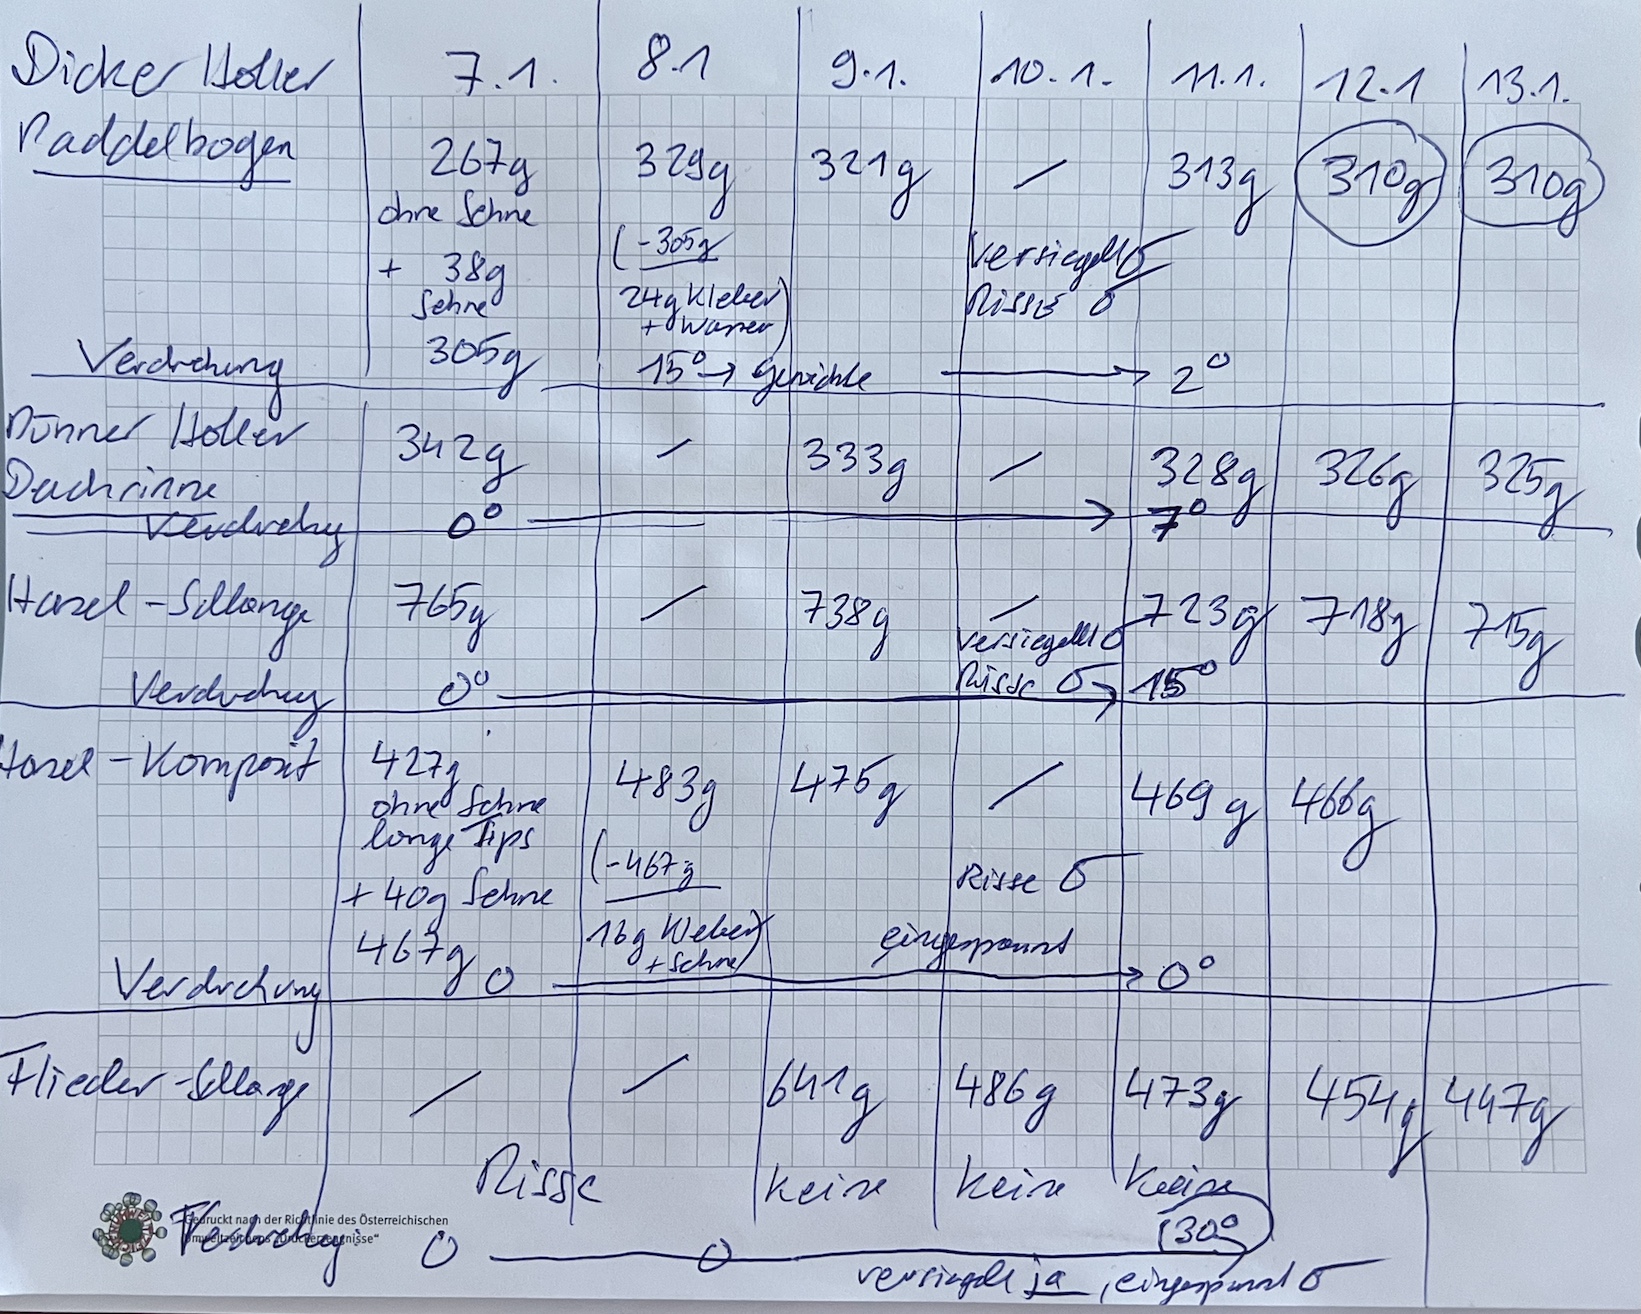 Dicker Holler 7.1. 8.1 9.1. 10.1. 11.1. 12.1 13.1.
Paddelbogen 267g 329g 321g / 313g 310g 310g
ohne Sehne (-305g versiegelt
+ 38g 24g Kleber Risse
Sehne + Wasser)
Verdrehung 305g 15° → Gewichte → 2°
Dünner Holler 342g / 333g / 328g 326g 325g
Dachrinne
Verdrehung 0° → 7°
Hasel-Schlange 765g / 738g / 723g 718g 715g
versiegelt
Verdrehung 0° Risse → 15°
Hasel-Komposit 427g 483g 475g / 469g 466g
ohne Sehne
lange Tips (-467g Risse
+ 40g Sehne 16g Kleber eingespannt
467g + Sehne)
Verdrehung 0 → 0°
Flieder-Schlange / / 641g 486g 473g 454g 447g
Risse keine keine keine
Gedruckt nach der Richtlinie des Österreichischen
Umweltzeichens „Druckerzeugnisse“
Verdrehung 0 0 (30°)
versiegelt ja, eingespannt